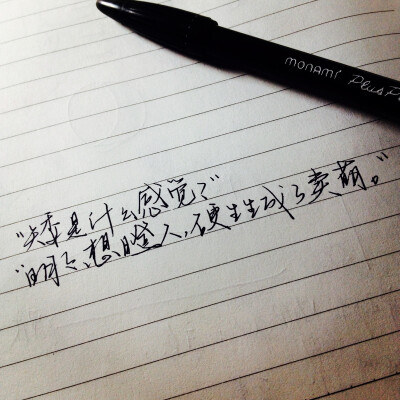 monami Plus P
"矮是什么感觉?"
"明々想瞪人,硬生生成了卖萌。"